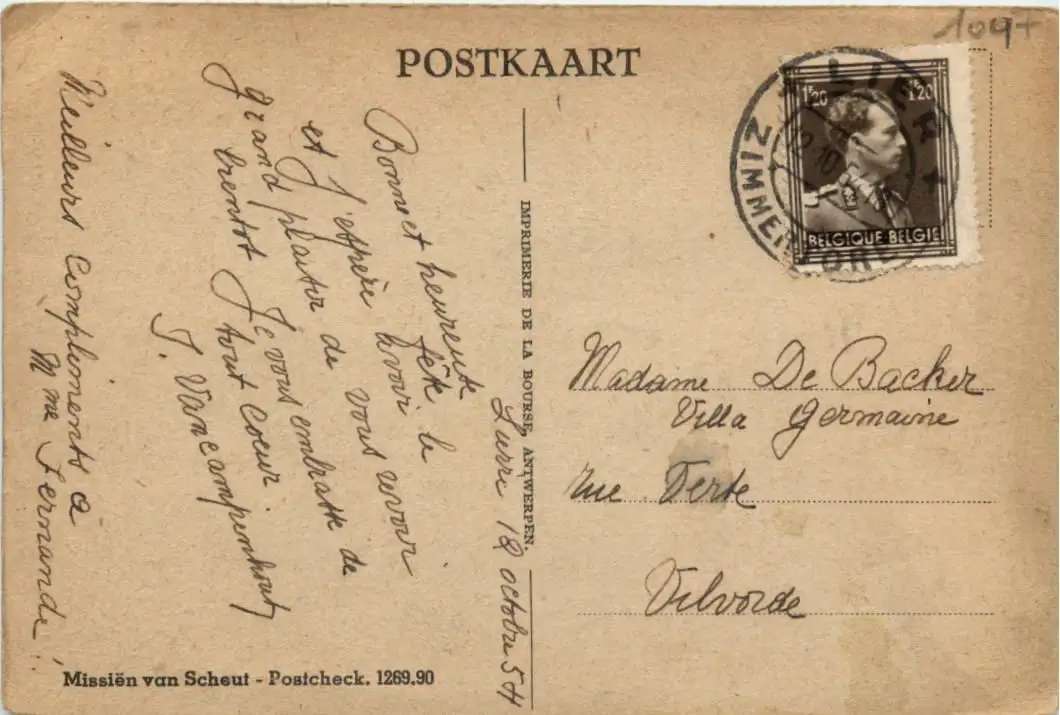 1047
POSTKAART
LIER
ZIMMER
1F20
1F20
BELGIQUE-BELGIE
Lierre 18 octobre 54
Bonne et heureuse
fête
et J'espère avoir le
grand plaisir de vous revoir
bientot Je vous embrasse de
tout coeur
J. Vancampenhout
Meilleurs Compliments à
Mme Fernande!
IMPRIMERIE DE LA BOURSE, ANTWERPEN.
Madame De Backer
Villa Germaine
rue Verte
Vilvorde
Missiën van Scheut - Postcheck. 1269.90